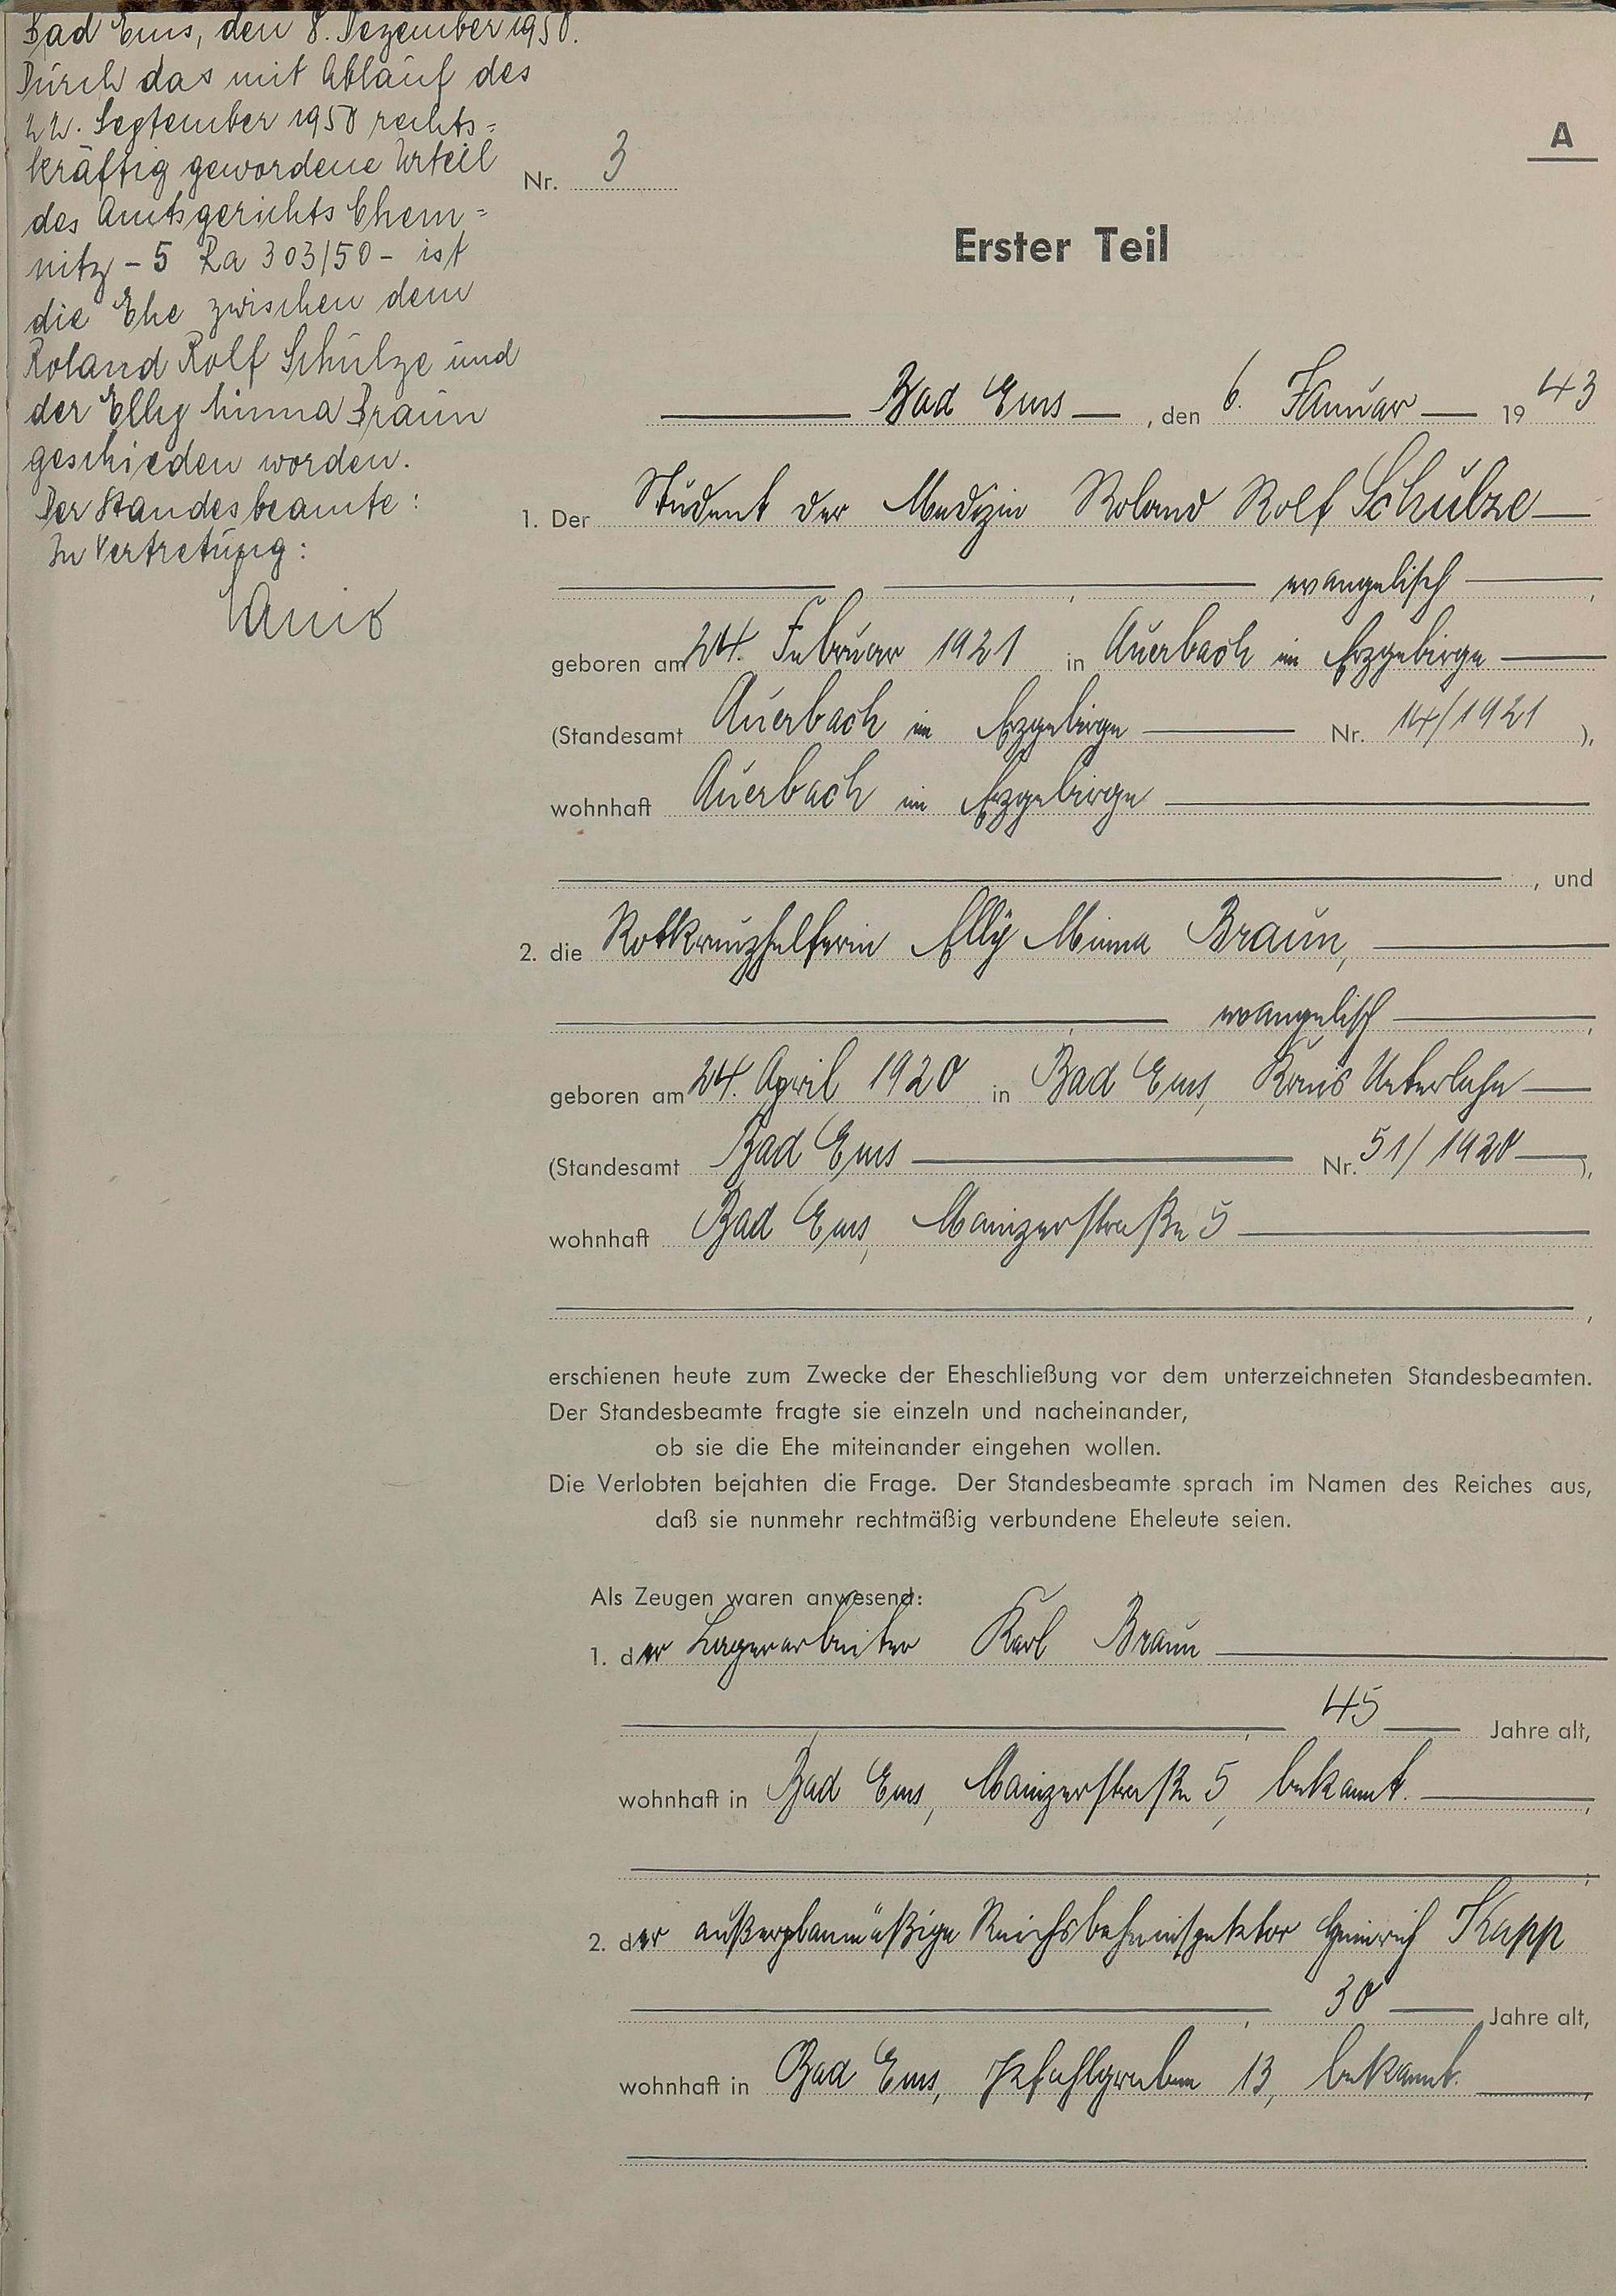 Bad Ems, den 8. Dezember 1950.
Durch das mit Ablauf des
22. September 1950 rechts=
kräftig gewordene Urteil
des Amtsgerichts Chem=
nitz - 5 Ra 303/50 - ist
die Ehe zwischen dem
Roland Rolf Schulze und
der Elly Minna Braun
geschieden worden.
Der Standesbeamte:
In Vertretung:
A
Nr. 3
Erster Teil
Bad Ems, den 6. Januar 1943
1. Der Student der Medizin Roland Rolf Schulze
, evangelisch,
geboren am 24. Februar 1921 in Auerbach im Erzgebirge
(Standesamt Auerbach im Erzgebirge Nr. 14/1921),
wohnhaft Auerbach im Erzgebirge
, und
2. die Rotkreuzhelferin Elly Minna Braun,
, evangelisch,
geboren am 24. April 1920 in Bad Ems, Kreis Unterlahn
(Standesamt Bad Ems Nr. 51/1920),
wohnhaft Bad Ems, Mainzerstraße 5
,
erschienen heute zum Zwecke der Eheschließung vor dem unterzeichneten Standesbeamten.
Der Standesbeamte fragte sie einzeln und nacheinander,
ob sie die Ehe miteinander eingehen wollen.
Die Verlobten bejahten die Frage. Der Standesbeamte sprach im Namen des Reiches aus,
daß sie nunmehr rechtmäßig verbundene Eheleute seien.
Als Zeugen waren anwesend:
1. der Lagerarbeiter Karl Braun
, 45 Jahre alt,
wohnhaft in Bad Ems, Mainzerstraße 5, bekannt.,
;
2. der außerplanmäßige Reichsbahninspektor Heinrich Kapp
, 30 Jahre alt,
wohnhaft in Bad Ems, Pfahlgraben 13, bekannt.,
.